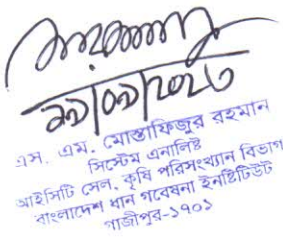 ২১/০৯/২০২৩
এস. এম. মোস্তাফিজুর রহমান
সিস্টেম এনালিষ্ট
আইসিটি সেল, কৃষি পরিসংখ্যান বিভাগ
বাংলাদেশ ধান গবেষনা ইনষ্টিটিউট
গাজীপুর-১৭০১